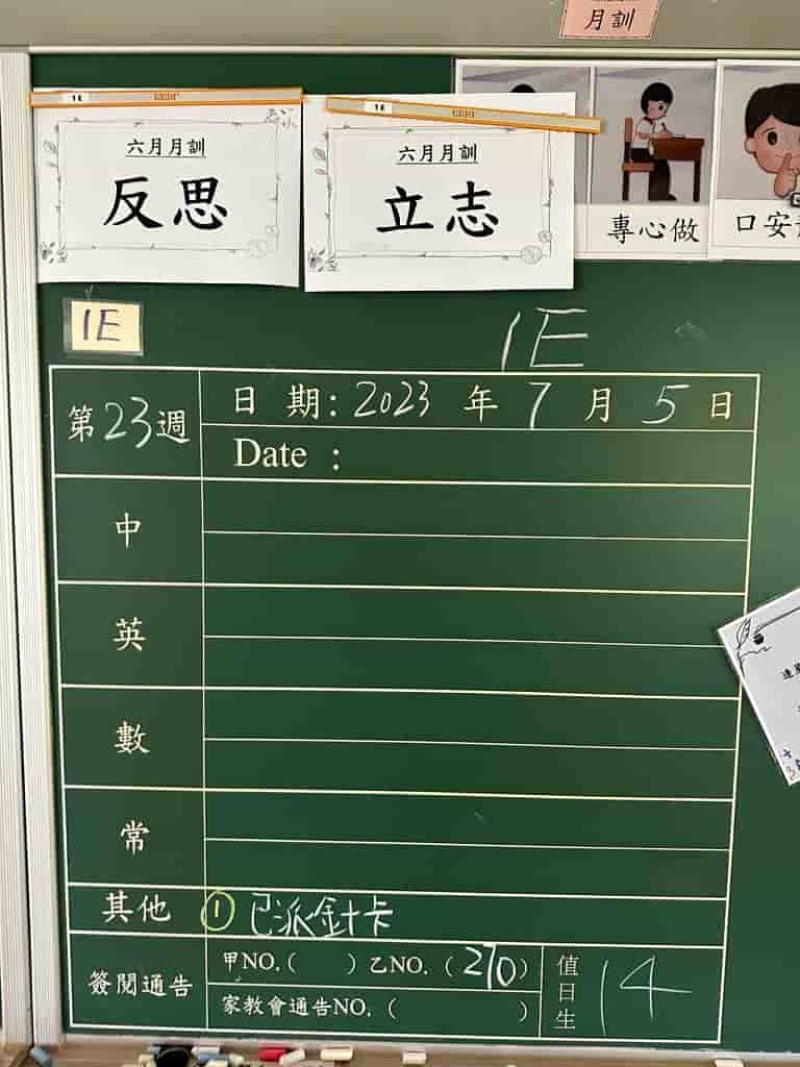 月訓
1E
六月月訓
反思
1E
六月月訓
立志
專心做
口安
1E
1E
第23週
日 期: 2023 年 7 月 5 日
Date :
中
英
數
常
其他 ① 已派針卡
簽閱通告
甲NO.( ) 乙NO. (270)
家教會通告NO. ( )
值日生 14